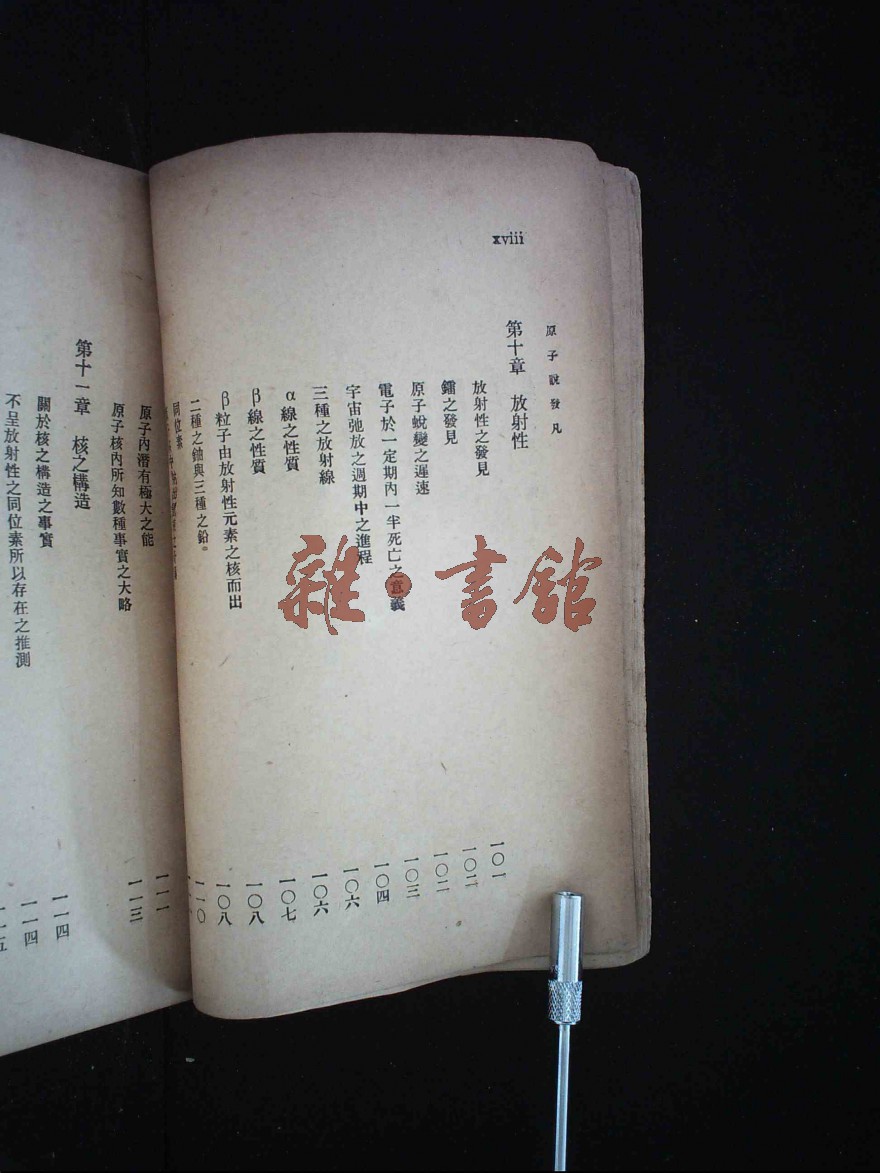 xviii
原子說發凡
第十章 放射性 一〇一
放射性之發見 一〇二
鐳之發見 一〇二
原子蛻變之遲速 一〇三
電子於一定期內一半死亡之意義 一〇四
宇宙弛放之週期中之進程 一〇六
三種之放射線 一〇六
α線之性質 一〇七
β線之性質 一〇八
β粒子由放射性元素之核而出 一〇八
二種之鈾與三種之鉛。 一一〇
同位素
原子內潛有極大之能 一一一
原子核內所知數種事實之大略 一一三
第十一章 核之構造 一一四
關於核之構造之事實 一一四
不呈放射性之同位素所以存在之推測 一一五
雜·書館